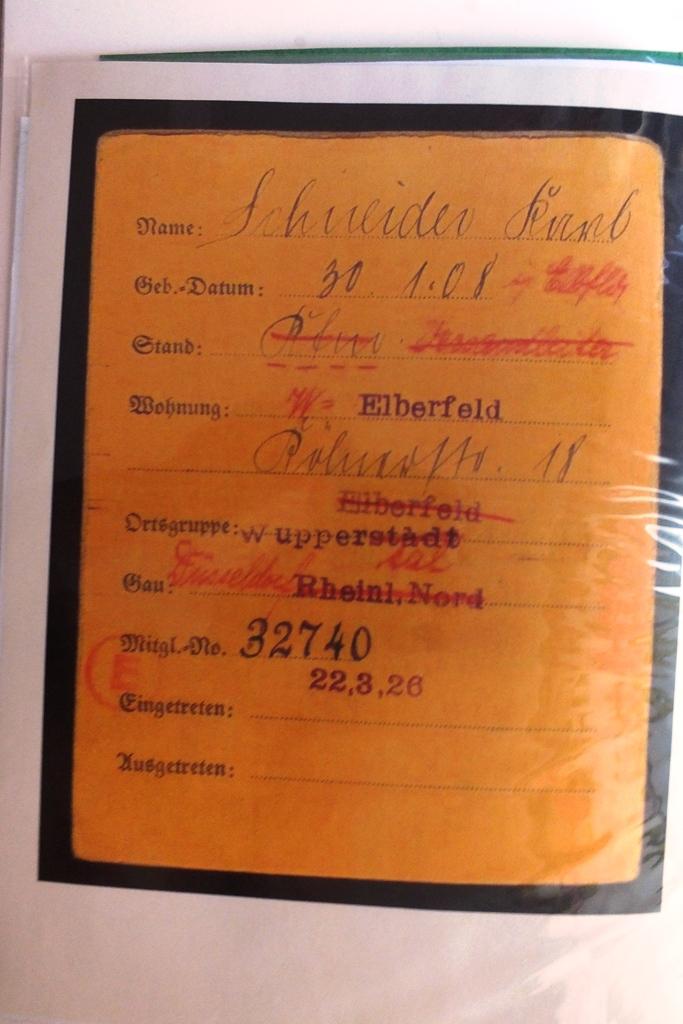 Name: Schneider Karl
Geb.-Datum: 30. 1.08 in Elbflds
Stand: Kfm. Versandleiter
Wohnung: W= Elberfeld
Kölnerstr. 18
Elberfeld
Ortsgruppe: Wupperstadt
tal
Gau: Düsseldorf Rheinl.Nord
Mitgl.-No. 32740
E
22,3,26
Eingetreten:
Ausgetreten: